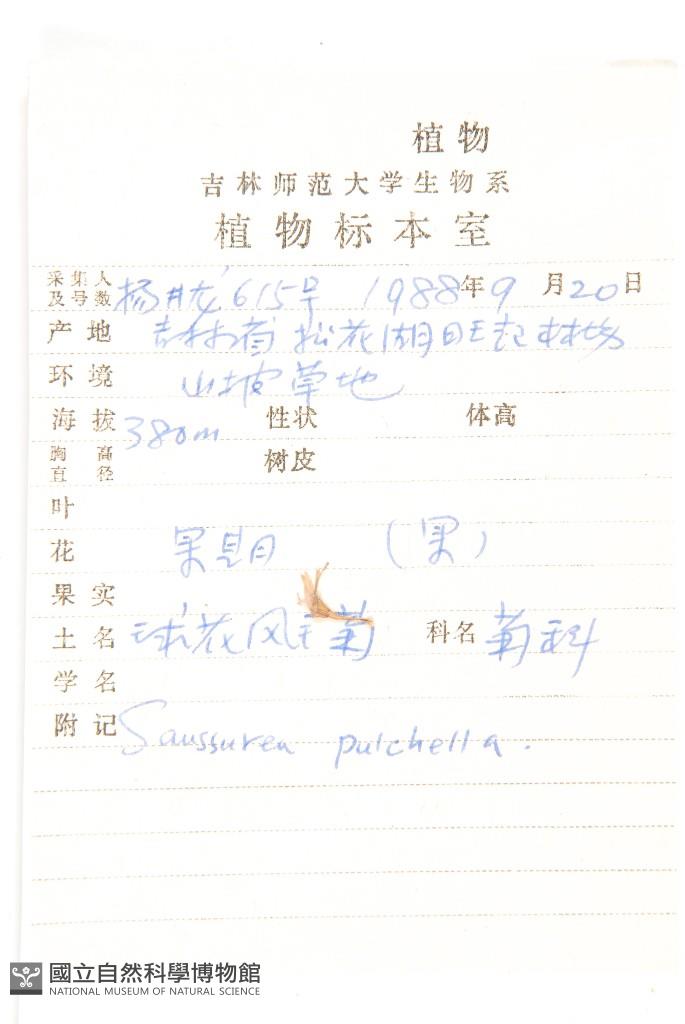 植物
吉林师范大学生物系
植物标本室
采集人及号数 杨井龙 615号 1988年9月20日
产地 吉林省松花湖旺起林场
环境 山坡草地
海拔 380m 性状 体高
胸高直径 树皮
叶
花 果期 (果)
果实
土名 球花风毛菊 科名 菊科
学名
附记 Saussurea pulchella.
國立自然科學博物館
NATIONAL MUSEUM OF NATURAL SCIENCE